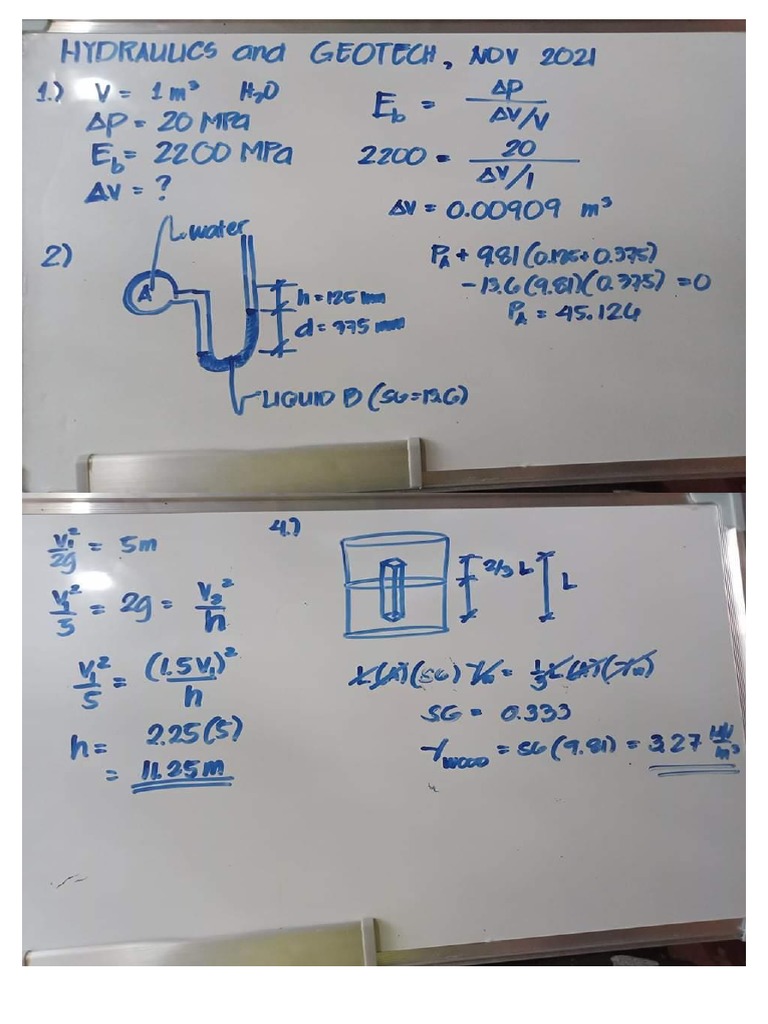 HYDRAULICS and GEOTECH, NOV 2021
1.) V = 1 m³ H₂O
ΔP = 20 MPa
E_b = 2200 MPa
ΔV = ?
E_b = ΔP / (ΔV/V)
2200 = 20 / (ΔV/1)
ΔV = 0.00909 m³
2)
water
A
h = 125 mm
d = 375 mm
LIQUID B (SG = 13.6)
P_A + 9.81 (0.125 + 0.375)
- 13.6 (9.81)(0.375) = 0
P_A = 45.126
V₁²/2g = 5m
V₁²/5 = 2g = V₂²/h
V₁²/5 = (1.5V₁)²/h
h = 2.25(5)
= 11.25 m
4.)
2/3 L
L
L(A)(SG) γw = 1/3 L(A)(γw)
SG = 0.333
γ_WOOD = SG (9.81) = 3.27 kN/m³